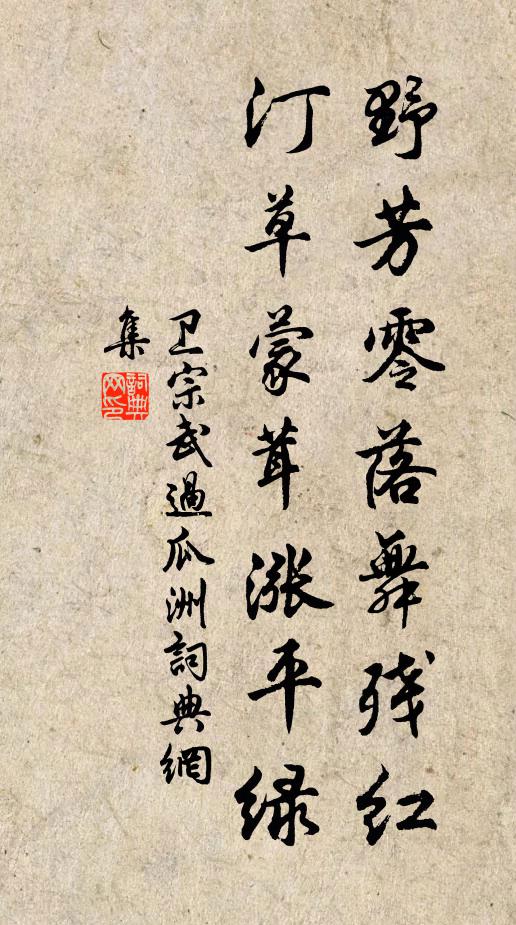 野芳零落舞残红
汀草蒙茸漲平绿
卫宗武過瓜洲詞典網
集
詞典
网印